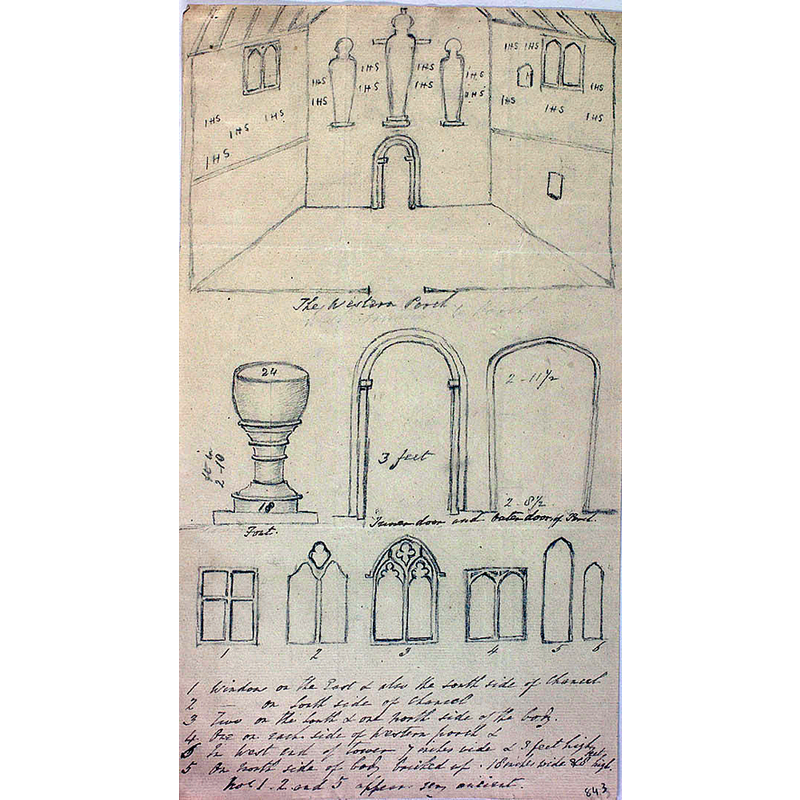 IHS IHS
IHS IHS IHS IHS IHS
IHS IHS IHS IHS IHS
IHS IHS IHS
IHS IHS IHS
IHS
The Western Porch
24
2 - 11½
3 feet
2 - 10
18
2 - 8½
Font. Inner door and outer door of Porch.
1 2 3 4 5 6
1 Window on the East & also the South side of Chancel
2 — on South side of Chancel
3 Two on the South & one North side of the body.
4 One on each side of Western porch &
6 In West end of tower 7 inches wide & 3 feet high
5 On North side of body bricked up. 18 inches wide & high.
Nos 1. 2 and 5 appear very ancient.
843